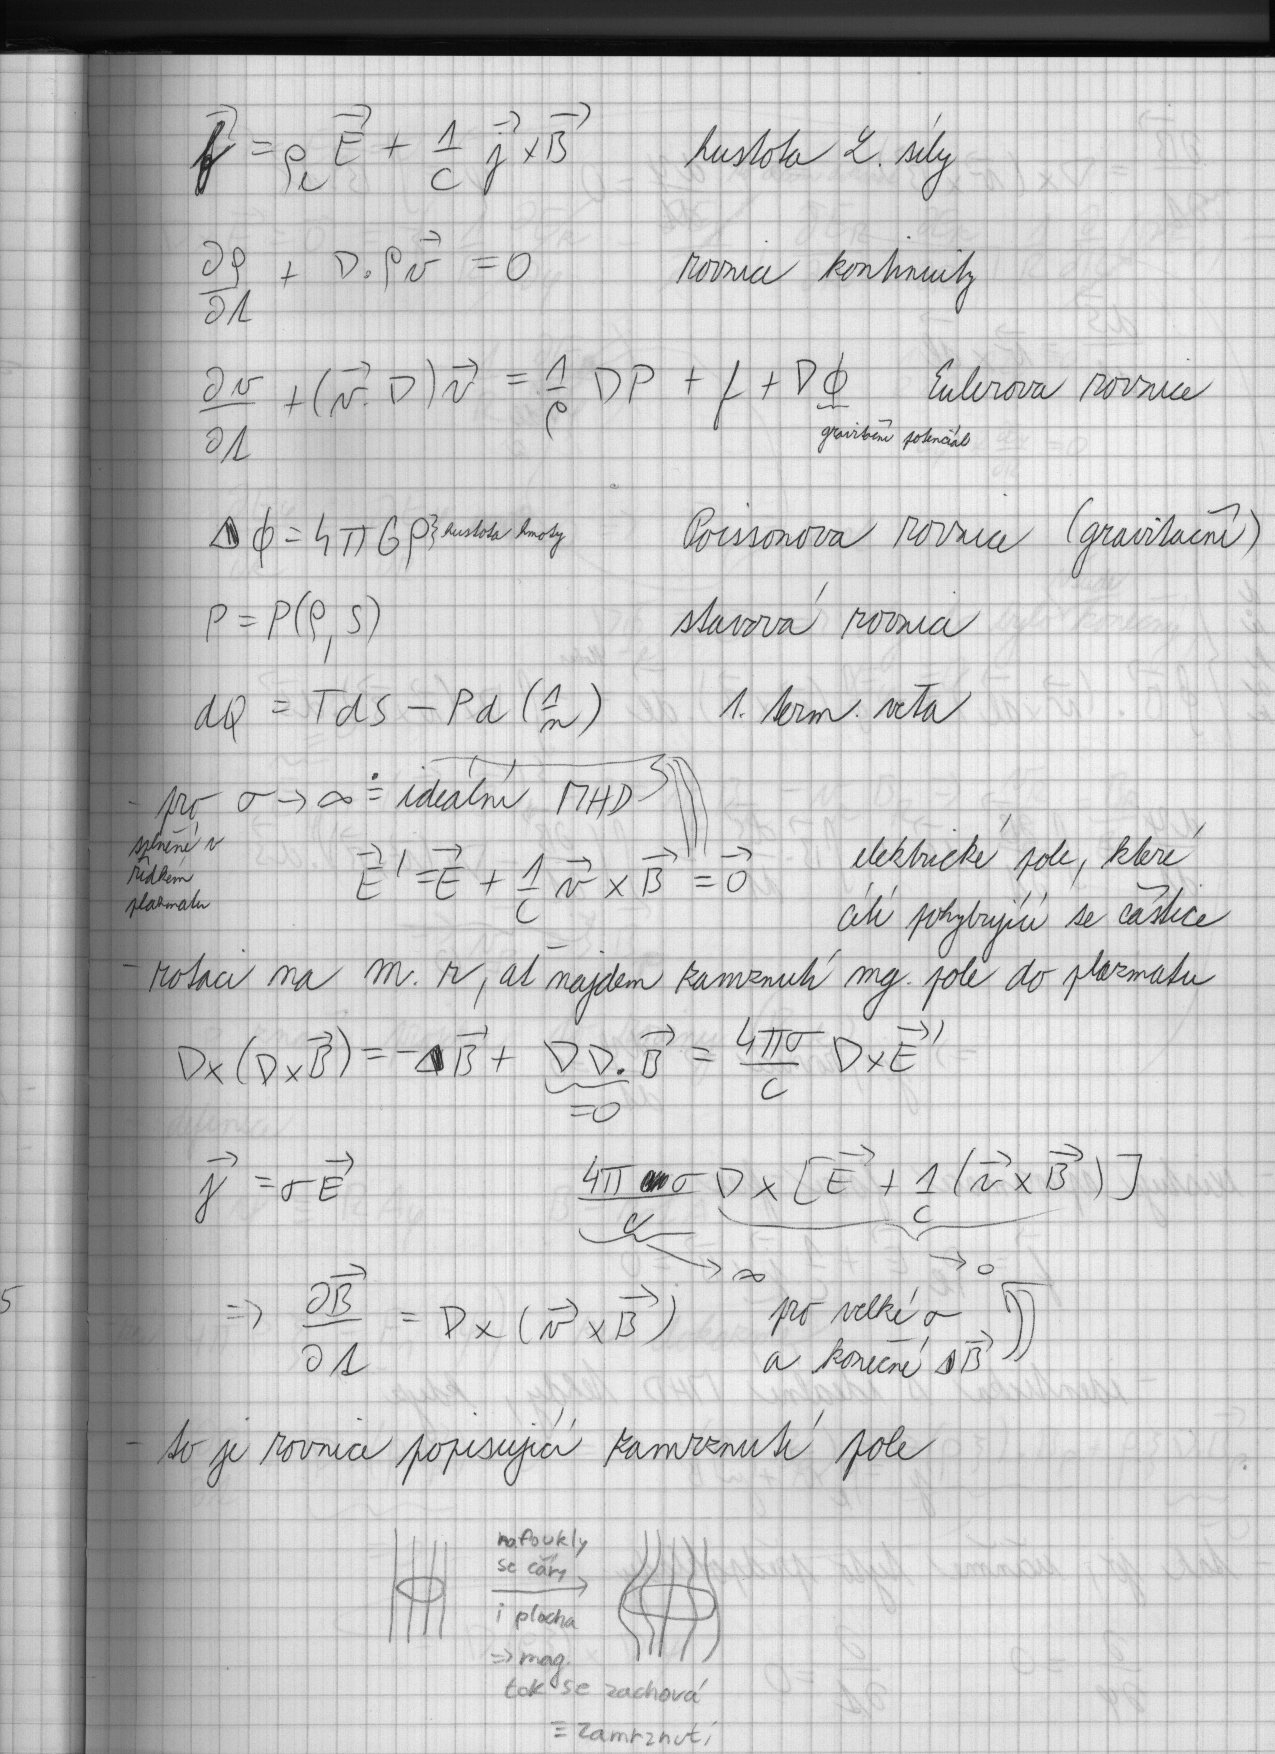 f⃗ = ρₑ E⃗ + 1/c j⃗ × B⃗   hustota L. síly
∂ρ/∂t + ∇·ρv⃗ = 0   rovnice kontinuity
∂v/∂t + (v⃗·∇)v⃗ = 1/ρ ∇P + f + ∇ϕ   Eulerova rovnice
gravitační potenciál
Δϕ = 4πGρ } hustota hmoty   Poissonova rovnice (gravitační)
P = P(ρ, S)   stavová rovnice
dQ = TdS − Pd(1/n)   1. term. věta
- pro σ → ∞ ≐ ideální MHD
splněné v
řídkém
plazmatu
E⃗' = E⃗ + 1/c v⃗ × B⃗ = 0⃗   elektrické pole, které
cítí pohybující se částice
- rotaci na m. r, ať najdem zamrznutí mg. pole do plazmatu
∇×(∇×B⃗) = −ΔB⃗ + ∇∇·B⃗ = 4πσ/c ∇×E⃗'
= 0
j⃗ = σE⃗   4πσ/c ∇×[E⃗ + 1/c (v⃗×B⃗)]
→ ∞   → 0
⇒ ∂B⃗/∂t = ∇×(v⃗×B⃗)   pro velké σ
a konečné ΔB⃗
- to je rovnice popisující zamrznutí pole
nafoukly
se čáry
i plocha
⇒ mag.
tok se zachová
≡ zamrznutí
5